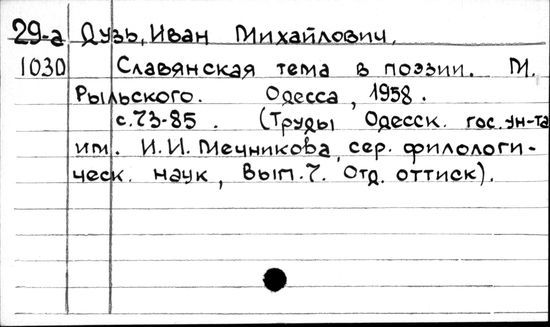 29-а Дузь, Иван Михайлович.
1030 Славянская тема в поэзии. М.
Рыльского. Одесса, 1958.
с.73-85. (Труды Одесск. гос. ун-та
им. И.И. Мечникова, сер. филологи-
ческ. наук, Вып.7. Отд. оттиск).